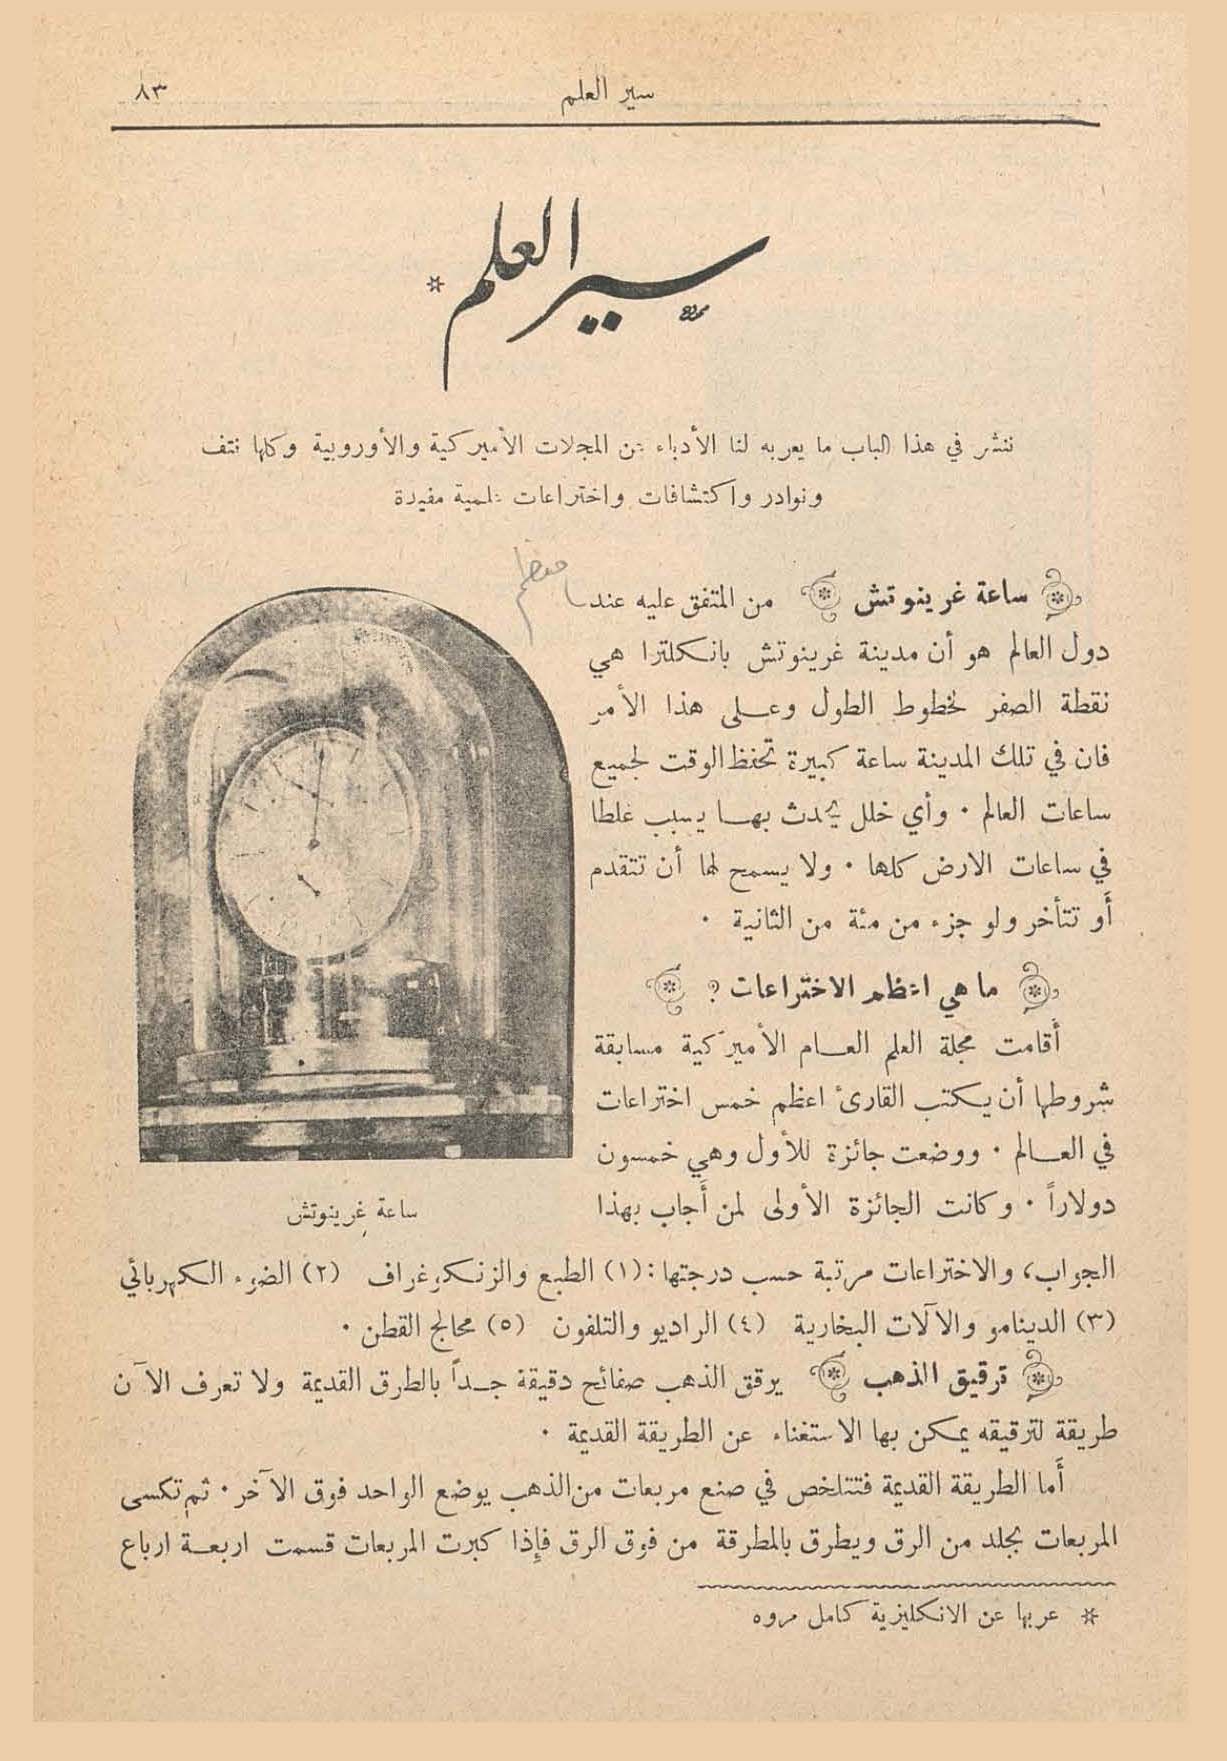 سير العلم
٨٣
سير العلم *
ننشر في هذا الباب ما يعربه لنا الأدباء عن المجلات الأميركية والأوروبية وكلها نتف
ونوادر واكتشافات واختراعات علمية مفيدة
ساعة غرينوتش من المتفق عليه عند
دول العالم هو أن مدينة غرينوتش بانكلترا هي
نقطة الصفر لخطوط الطول وعلى هذا الأمر
فان في تلك المدينة ساعة كبيرة تحفظ الوقت لجميع
ساعات العالم · وأي خلل يحدث بها يسبب غلطا
في ساعات الارض كلها · ولا يسمح لها أن تتقدم
أو تتأخر ولو جزء من مئة من الثانية ·
ما هي اعظم الاختراعات ؟
أقامت مجلة العلم العام الأميركية مسابقة
شروطها أن يكتب القارئ اعظم خمس اختراعات
في العالم · ووضعت جائزة للأول وهي خمسون
دولاراً · وكانت الجائزة الأولى لمن أجاب بهذا
ساعة غرينوتش
الجواب، والاختراعات مرتبة حسب درجتها : (١) الطبع والزنكوغراف (٢) الضوء الكهربائي
(٣) الدينامو والآلات البخارية (٤) الراديو والتلفون (٥) محالج القطن ·
ترقيق الذهب يرقق الذهب صفائح دقيقة جداً بالطرق القديمة ولا تعرف الآن
طريقة لترقيقه يمكن بها الاستغناء عن الطريقة القديمة ·
أما الطريقة القديمة فتتلخص في صنع مربعات من الذهب يوضع الواحد فوق الآخر · ثم تكسى
المربعات بجلد من الرق ويطرق بالمطرقة من فوق الرق فإذا كبرت المربعات قسمت اربعة ارباع
* عربها عن الانكليزية كامل مروه